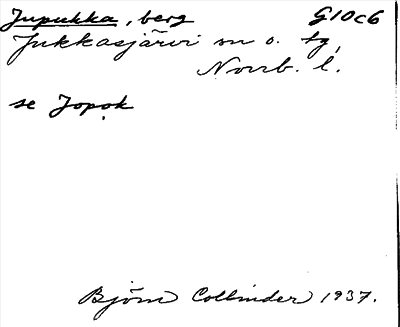 Jupukka, berg G10c6
Jukkasjärvi sn o. tg,
Norrb. l.
se Jopọk
Björn Collinder 1937.